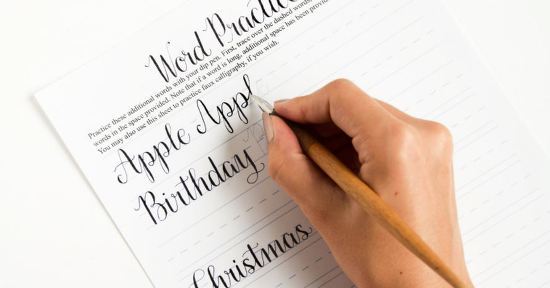 Word Practice
Practice these additional words with your dip pen. First, trace over the dashed words
words in the space provided. Note that if a word is long, additional space has been provided
You may also use this sheet to practice faux calligraphy, if you wish.
Apple Appl
Birthday
Christmas